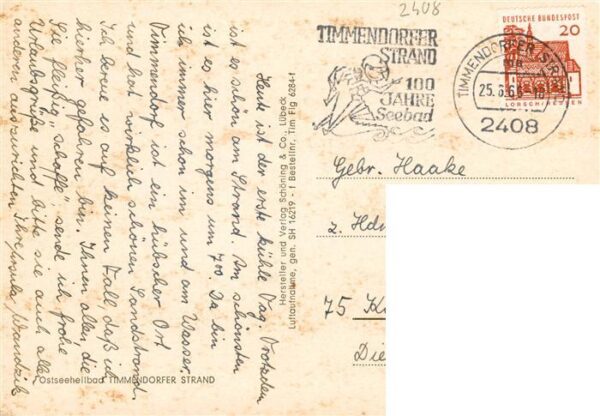 2408
TIMMENDORFER
STRAND
100
JAHRE
Seebad
DEUTSCHE BUNDESPOST
20
LORSCH/HESSEN
TIMMENDORFER STR
25.6.66
2408
Gebr. Haake
z. Hd
75 K
Die
Heute ist der erste kühle Tag. Trotzdem
ist es schön am Strand. Am schönsten
ist es hier morgens um 7 00 Da bin
ich immer schon im und am Wasser.
Timmendorf ist ein hübscher Ort
und hat wirklich schönen Sandstrand.
Ich bereue es auf keinen Fall, daß ich
hierher gefahren bin. Ihnen allen, die
Sie fleißig "schaffe", sende ich frohe
Urlaubsgrüße und bitte sie auch allen
anderen auszurichten Ihre Ursula Wandzik
Hersteller und Verlag Schöning & Co., Lübeck
Luftaufnahme, gen. SH 16219 - 1 Bestellnr. Tim Flg 6284/1
Ostseeheilbad TIMMENDORFER STRAND